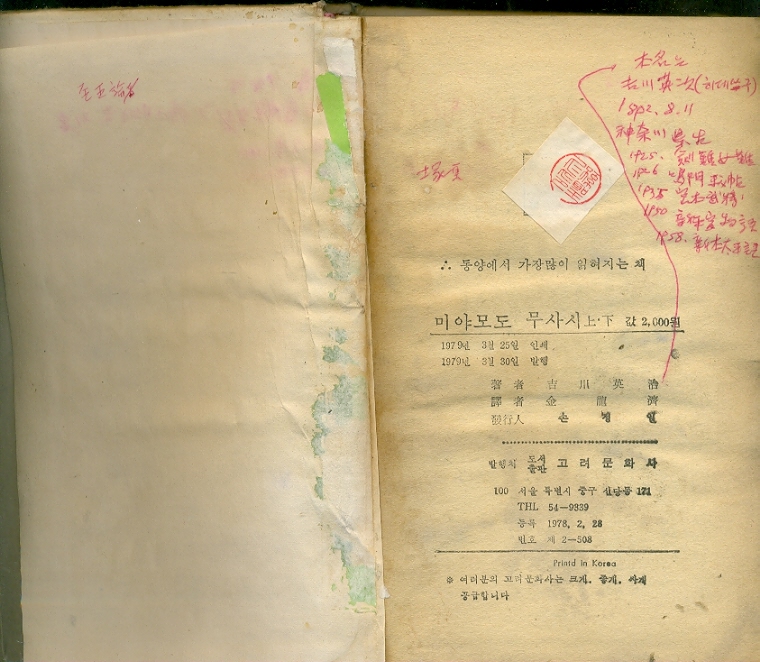 本名는
吉川英次(히데쓰구)
1892. 8. 11
神奈川
1925.
1926
1935
1950
1958.
∴ 동양에서 가장많이 읽혀지는 책
미야모도 무사시上·下 값 2,000원
1979년 3월 25일 인쇄
1979년 3월 30일 발행
著者 吉川英治
譯者 金龍濟
發行人 손병일
발행처 도서출판 고려문화사
100 서울 특별시 중구 신당동 171
THL 54-9339
등록 1978, 2, 28
번호 제 2-508
Printd in Korea
※ 여러분의 고려문화사는 크게. 좋게. 싸게
공급합니다